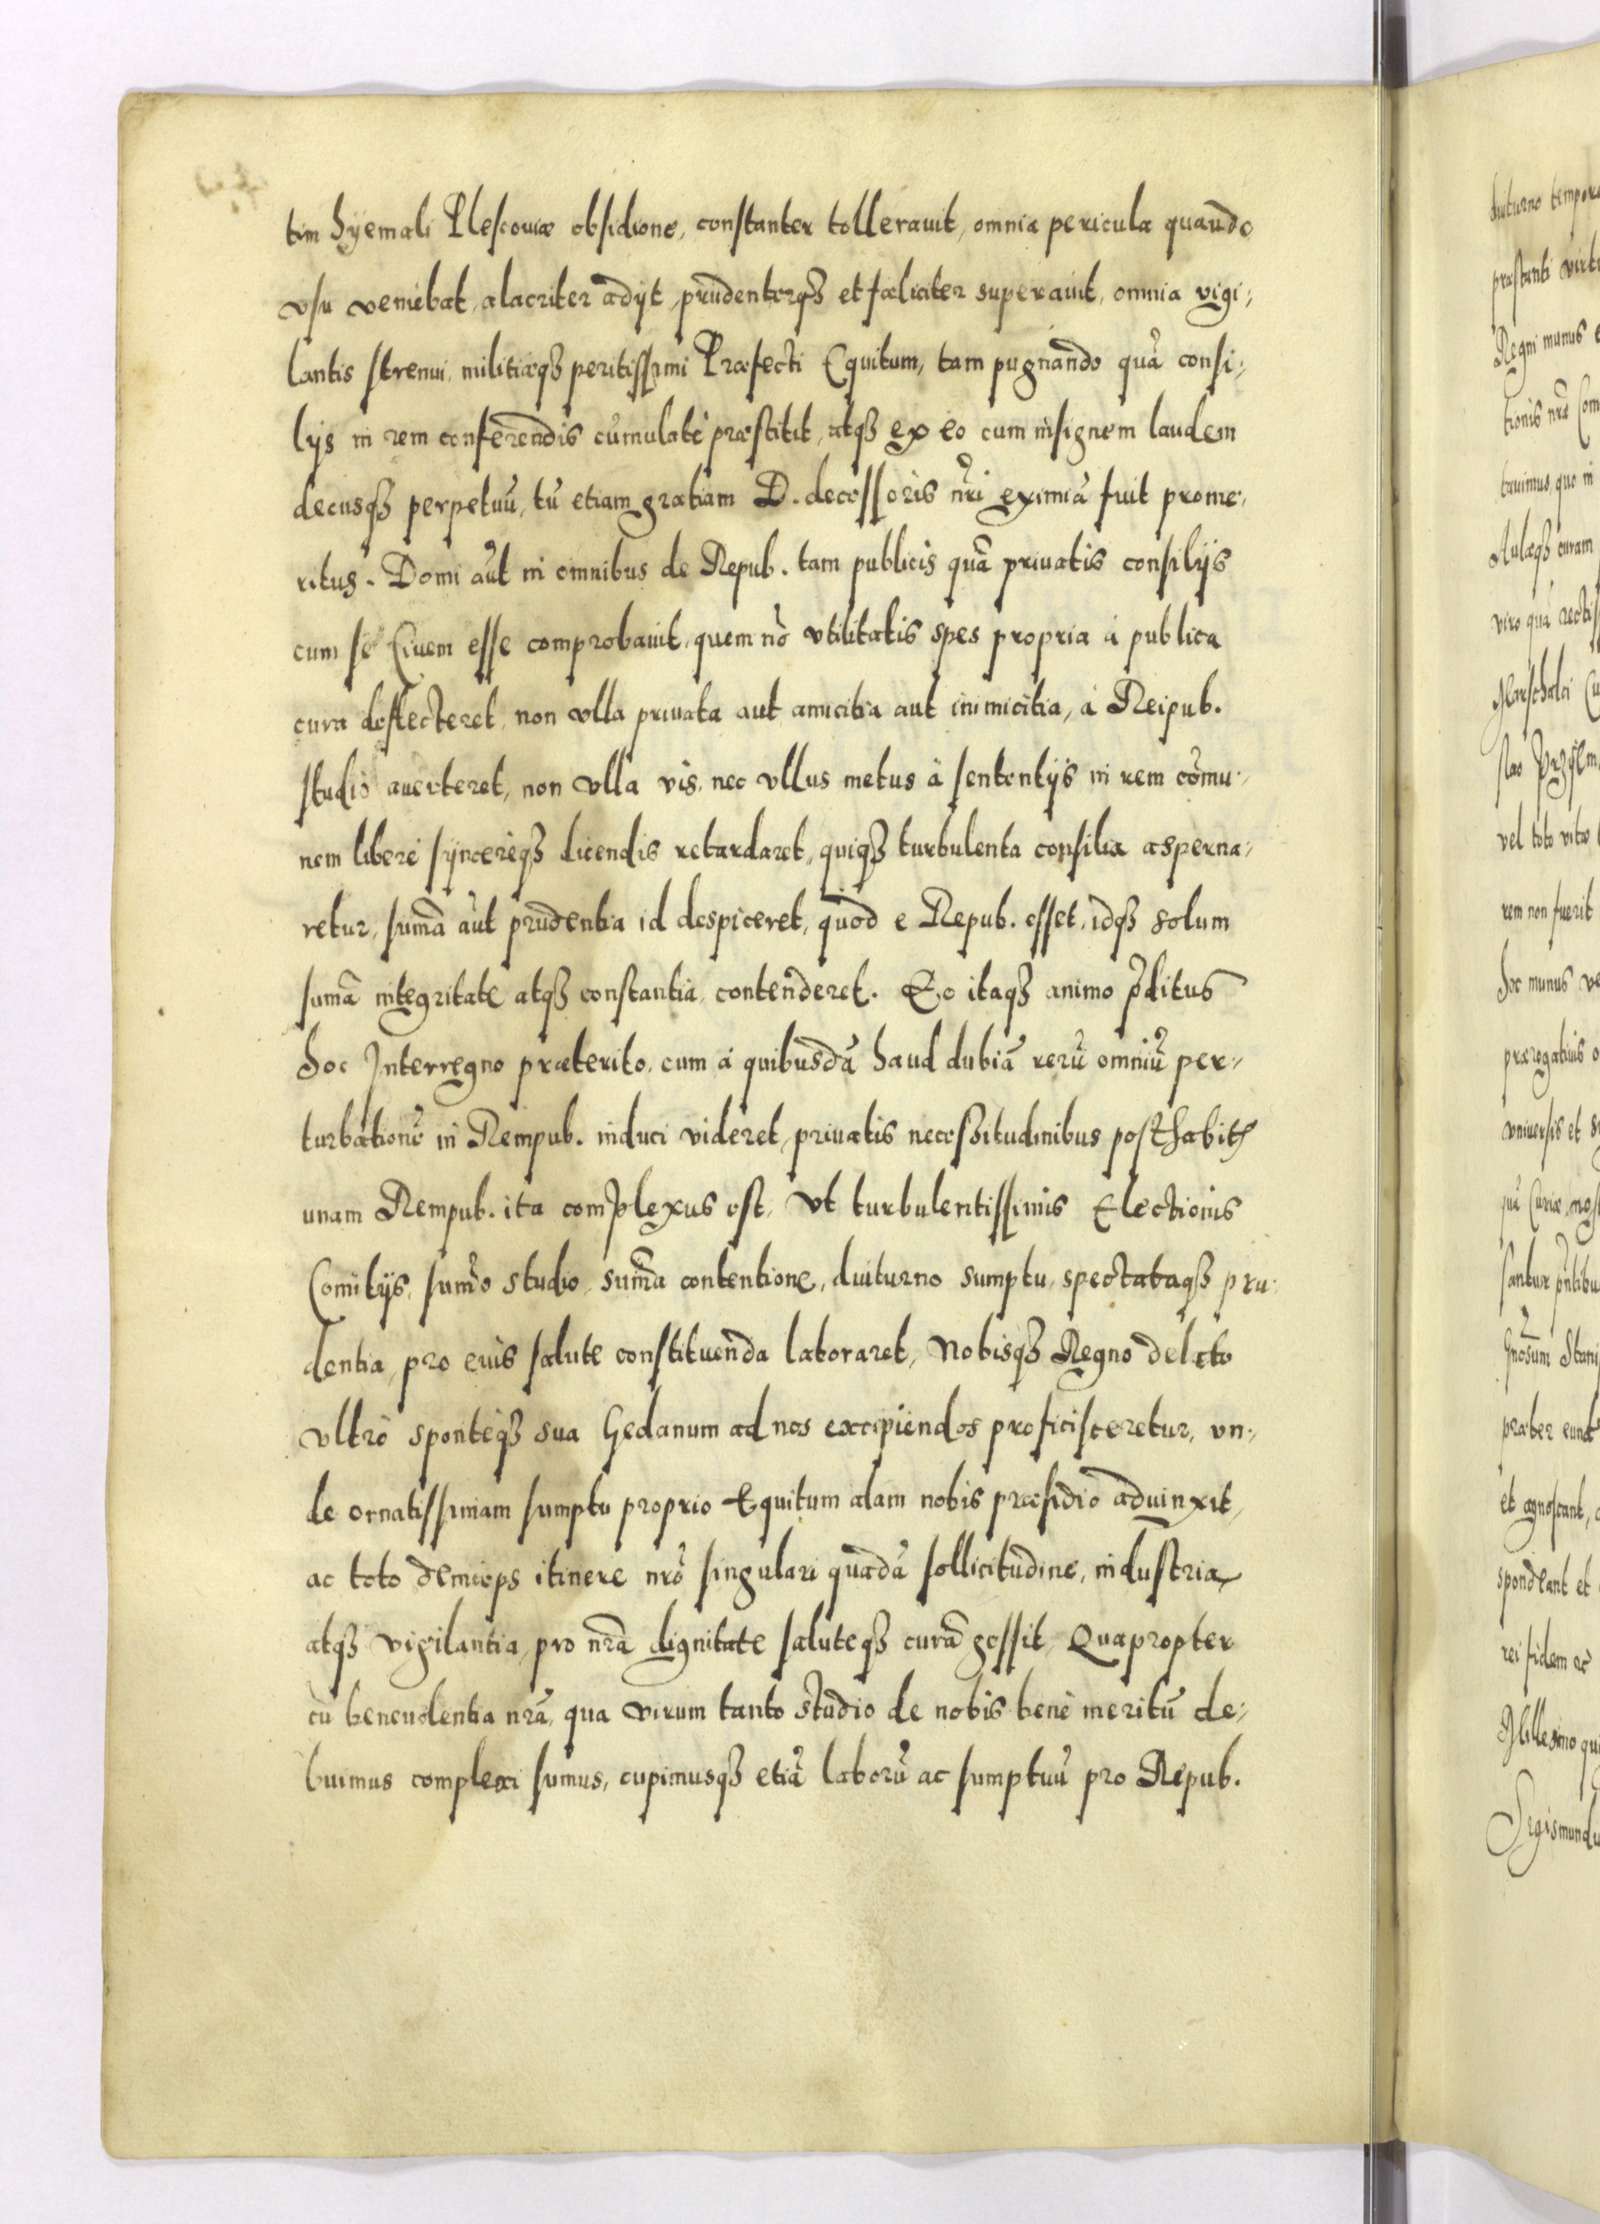 tim hyemali Plescouiæ obsidione, constanter tollerauit, omnia pericula quando
vsu veniebat, alacriter adijt, prudenterqȝ et fæliciter superauit, omnia vigi:
lantis strenui, militiæqȝ peritissimi Præfecti Equitum, tam pugnando quā consi:
lijs in rem conferendis cumulatè præstitit, atqȝ ex eo cum insignem laudem
decusqȝ perpetuū, tū etiam gratiam D. decessoris nr̄i eximiā fuit prome:
ritus. Domi aūt in omnibus de Repub. tam publicis quā priuatis consilijs
eum se Ciuem esse comprobauit, quem nō vtilitatis spes propria à publica
cura deflecteret, non vlla priuata aut amicitia aut inimicitia, à Reipub.
studio auerteret, non vlla vis, nec vllus metus à sententijs in rem cōmu:
nem liberè syncereqȝ dicendis retardaret, quiqȝ turbulenta consilia asperna:
retur, sum̄a aūt prudentia id despiceret, quod e Repub. esset, idqȝ solum
sum̄a integritate atqȝ constantia contenderet. Eo itaqȝ animo p̄ditus
hoc Interregno præterito, cum à quibusdā haud dubiā rerū omniū per:
turbationē in Rempub. induci videret, priuatis necessitudinibus posthabitis
unam Rempub. ita complexus est, Vt turbulentissimis Electionis
Comitijs, sum̄o studio, sum̄a contentione, diuturno sumptu, spectataqȝ pru:
dentia, pro eius salute constituenda laboraret, Nobisqȝ Regno delato
vltrò sponteqȝ sua Gedanum ad nos excipiendos proficisceretur, vn:
de ornatissimam sumptu proprio Equitum alam nobis præsidio aduinxit,
ac toto deinceps itinere nr̄o singulari quadā sollicitudine, industria,
atqȝ vigilantia, pro nr̄a dignitate saluteqȝ curā gessit, Quapropter
cū beneuolentia nr̄a, qua virum tanto studio de nobis benè meritū de:
buimus complexi sumus, cupimusqȝ etiā laborū ac sumptuū pro Repub.
diuturno tempor
præstanti virtu
Regni munus
tionis nr̄æ Com
tauimus, quo in
Aulæqȝ curam
viro quā rectis
Marschalci Cu
vel toto vitæ
rem non fuerit
hoc munus ve
prærogatiuis
vniuersis et
Stani
præter eund
et agnoscant,
spondeant et
rei fidem
Millesimo qui
Sigismundu